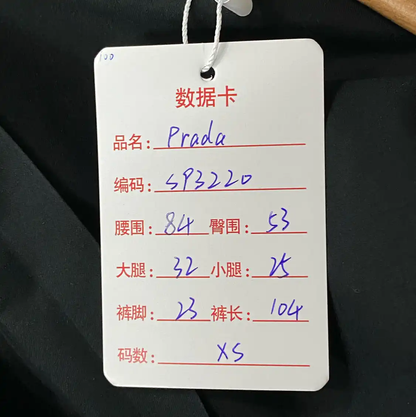 100
数据卡
品名: Prada
编码: SP3220
腰围: 84 臀围: 53
大腿: 32 小腿: 25
裤脚: 23 裤长: 104
码数: XS